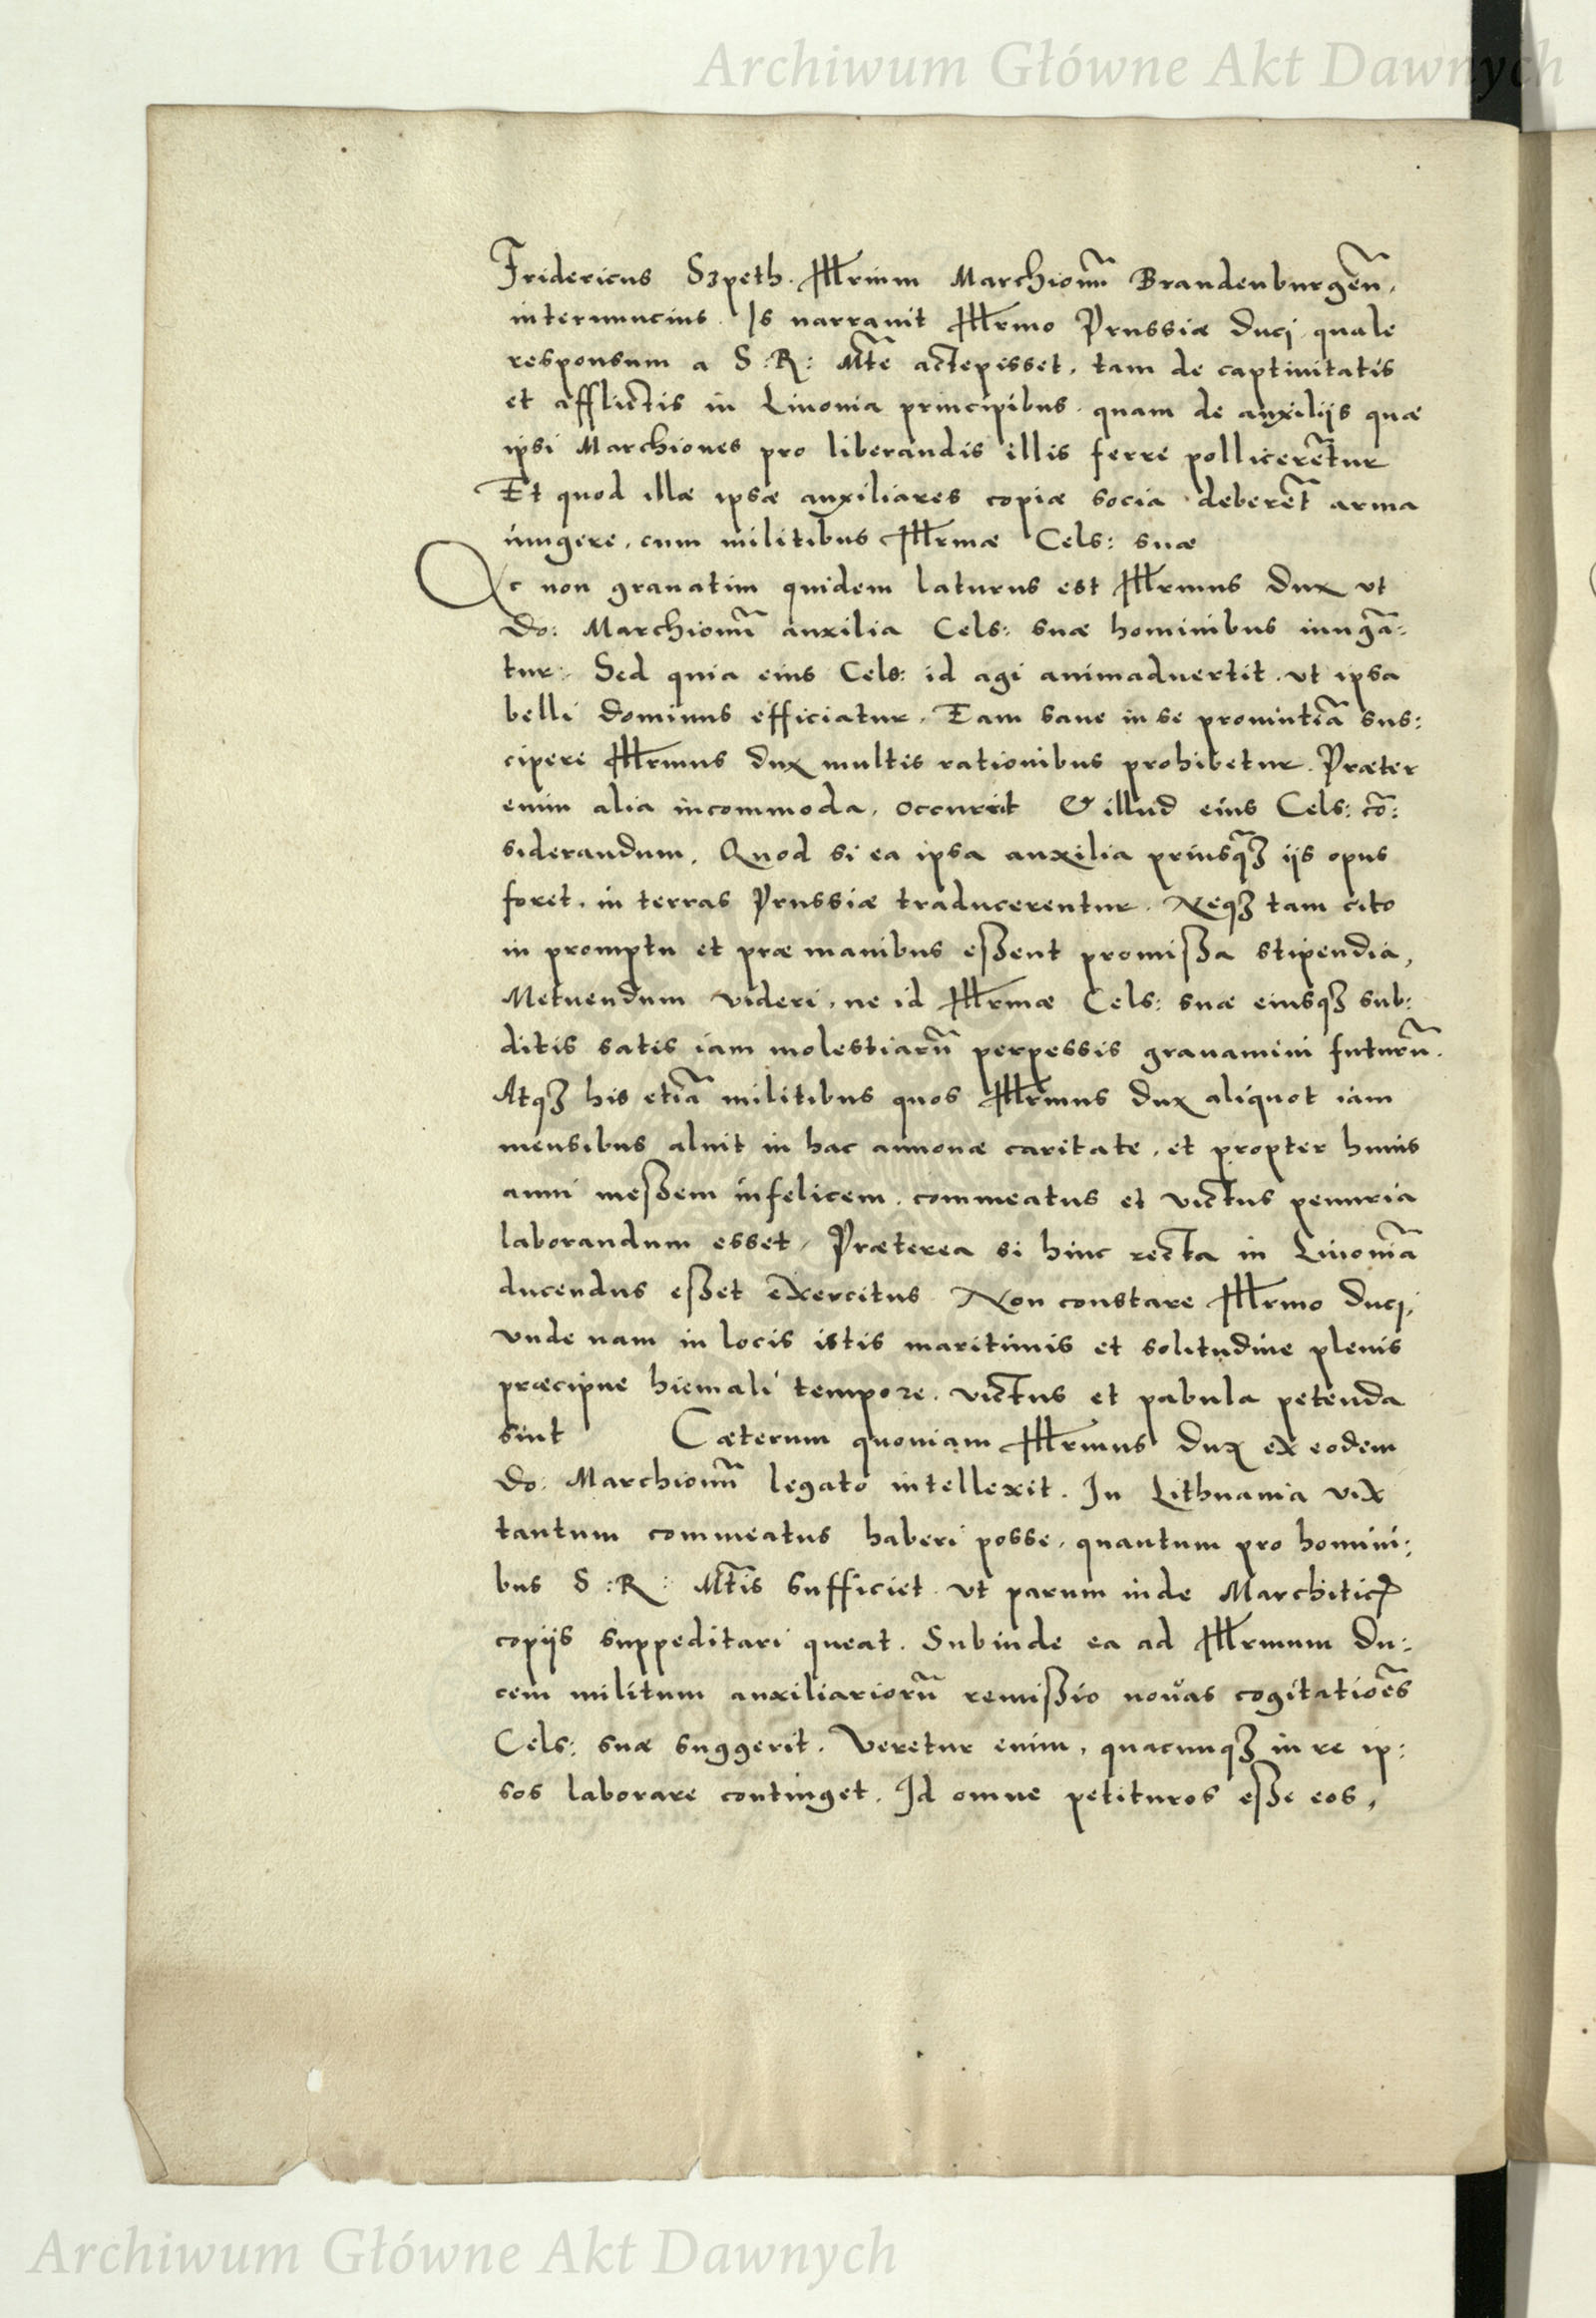 Archiwum Główne Akt Dawnych
Fridericus Szpeth. Illrium Marchionū Brandenburgeñ.
internuncius. Is narrauit Illrmo Prussiæ Duci quale
responsum a S: R: Mte accepisset, tam de captiuitatis
et afflictis in Liuonia principibus. quam de auxilijs quæ
ipsi Marchiones pro liberandis illis ferre pollicerētur
Et quod illæ ipsæ auxiliares copiæ socia deberēt arma
iungere, cum militibus Illrmæ Cels: suæ
Ac non grauatim quidem laturus est Illrmus Dux vt
Do: Marchionū auxilia Cels: suæ hominibus iungā:
tur. Sed quia eius Cels: id agi animaduertit. vt ipsa
belli dominus efficiatur. Eam sane in se prouintiā sus:
cipere Illrmus Dux multis rationibus prohibetur. Præter
enim alia incommoda, occurrit & illud eius Cels: cō:
siderandum. Quod si ea ipsa auxilia priusqȝ̄ ijs opus
foret, in terras Prussiæ traducerentur. Neqȝ tam cito
in promptu et præ manibus eßent promißa stipendia,
Metuendum videri, ne id Illrmæ Cels: suæ eiusqȝ sub:
ditis satis iam molestiarū perpessis grauamini futurū.
Atqȝ his etiā militibus quos Illrmus Dux aliquot iam
mensibus aluit in hac annonæ caritate, et propter huius
anni meßem infelicem. commeatus et victus penuria
laborandum esset, Præterea si hinc recta in Liuoniā
ducendus eßet exercitus Non constare Illrmo Duci,
vnde nam in locis istis maritimis et solitudine plenis
præcipue hiemali tempore. victus et pabula petenda
sint Cæterum quoniam Illrmus Dux ex eodem
Do: Marchionū legato intellexit. In Lithuania vix
tantum commeatus haberi posse, quantum pro homini:
bus S: R: Mtis sufficiet. vt parum inde
copijs suppeditari queat. Subinde ea ad Illrmum Du:
cem militum auxiliariorū remißio nouas cogitatiões
Cels: suæ suggerit. Veretur enim, quacunqȝ in re ip:
sos laborare continget. Id omne petituros eße eos,
Archiwum Główne Akt Dawnych